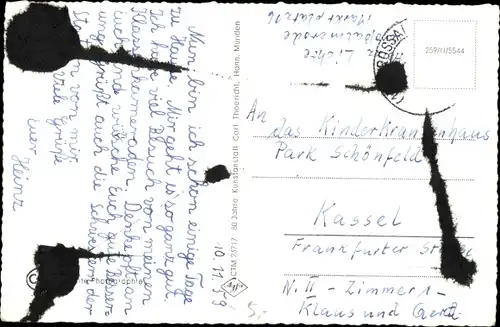 Nun bin ich schon einige Tage
zu Hause. Mir geht es so ganz gut.
Ich habe viel Besuch von meinen
Klassenkameraden. Denke oft an
euch und wünsche Euch gute Besser-
ung. Grüßt auch die Schwestern der
von mir.
Viele Grüße
euer
Heinz
80 Jahre Kunstanstalt Carl Thoericht, Hann. Münden
CTM 20717
10.11.9
Lichte
Marktplatz 16
259/11/5544
An
das Kinderkrankenhaus
Park Schönfeld
Kassel
Frankfurter
N. II - Zimmer 1
Klaus und Gerd